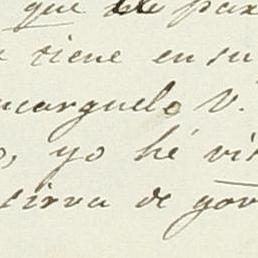 que de pax
tiene en su
ncarguelo V.
o, yo hé vis
sirva de gov